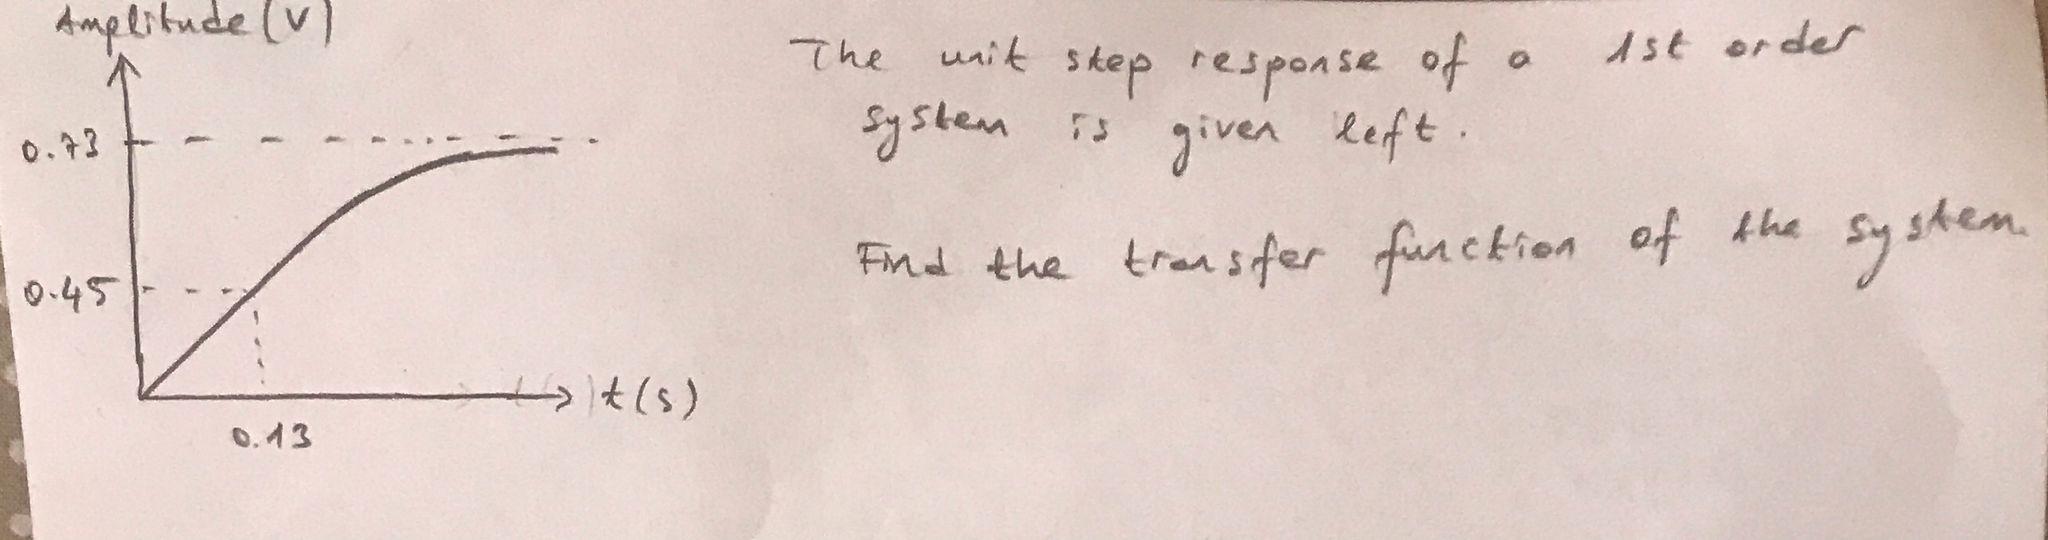 Amplitude (V)
The unit step response of a 1st order
system is given left.
0.73
Find the transfer function of the system.
0.45
t(s)
0.13